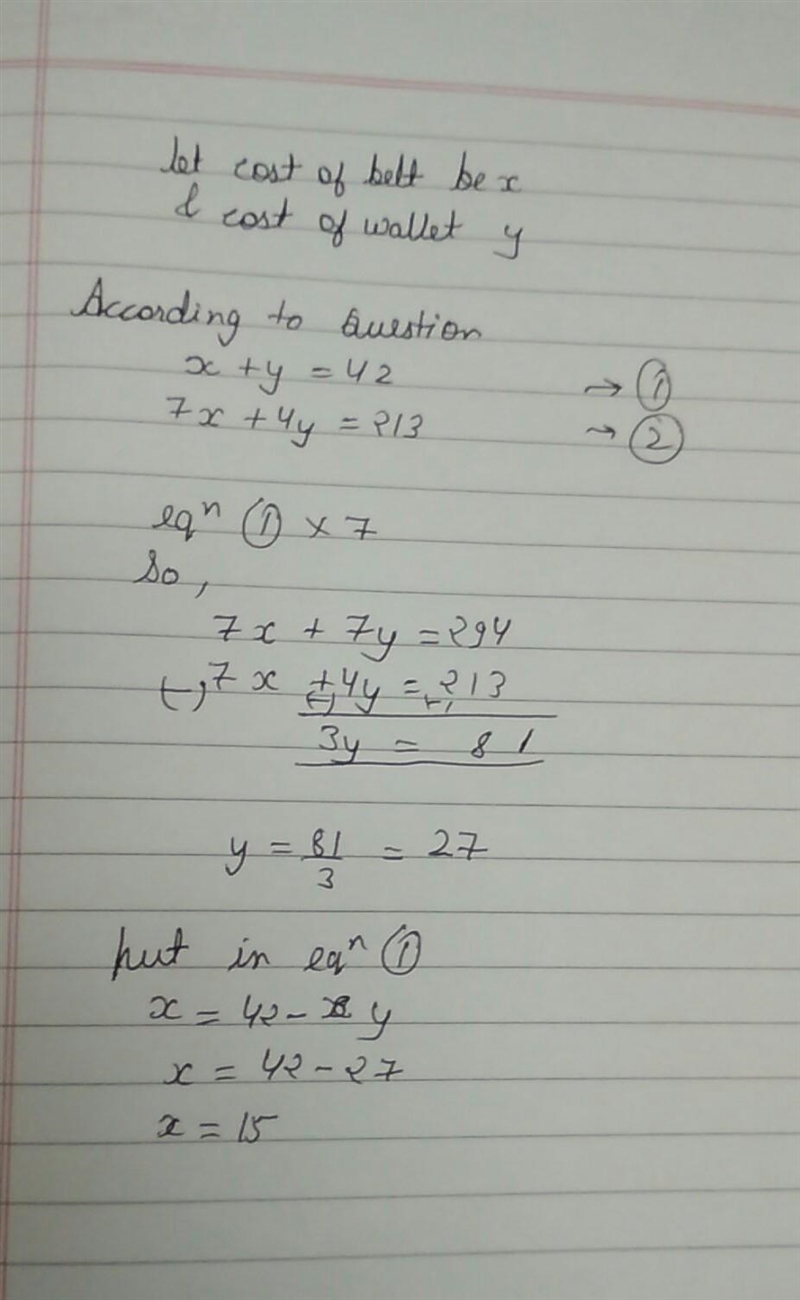 let cost of belt be x
& cost of wallet y
According to Question
x + y = 42 → ①
7x + 4y = 213 → ②
eqⁿ ① × 7
So,
7x + 7y = 294
(-) 7x + 4y = 213
(-) (-)
3y = 81
y = 81/3 = 27
put in eqⁿ ①
x = 42 - y
x = 42 - 27
x = 15